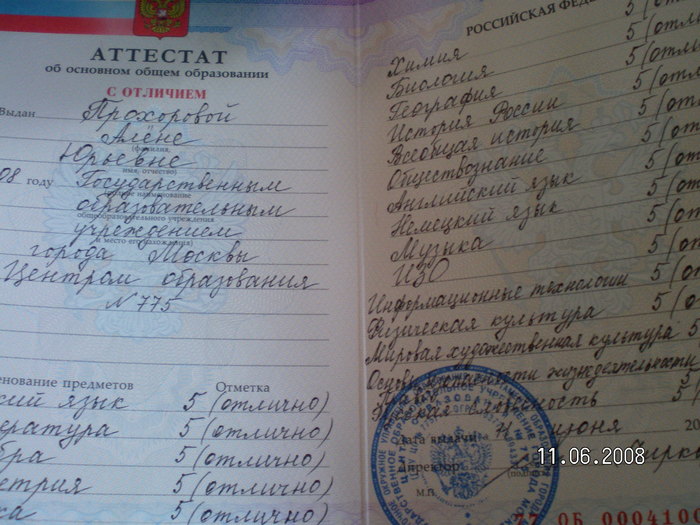 АТТЕСТАТ
об основном общем образовании
С ОТЛИЧИЕМ
Выдан Прохоровой
Алёне
(фамилия,
Юрьевне
имя, отчество)
08 году Государственным
образовательным
общеобразовательного учреждения
учреждением
и место его нахождения)
города Москвы
Центром образования
N 775
менование предметов Отметка
кий язык 5 (отлично)
ература 5 (отлично)
бра 5 (отлично)
етрия 5 (отлично)
ка 5 (отлично)
РОССИЙСКАЯ ФЕДЕ
Химия 5 (отли
Биология 5 (отли
География 5 (отл
История России 5 (отл
Всеобщая история 5 (отл
Обществознание 5 (от
Английский язык 5 (от
Немецкий язык 5 (от
Музыка 5 (от
ИЗО 5 (от
Информационные технологии 5 (от
Физическая культура 5 (о
Мировая художественная культура 5
Основы безопасности жизнедеятельности 5
5 (
Дата выдачи июня 20
Директор Чирк
(подпись)
М.П.
11.06.2008
77 ОБ 0004100